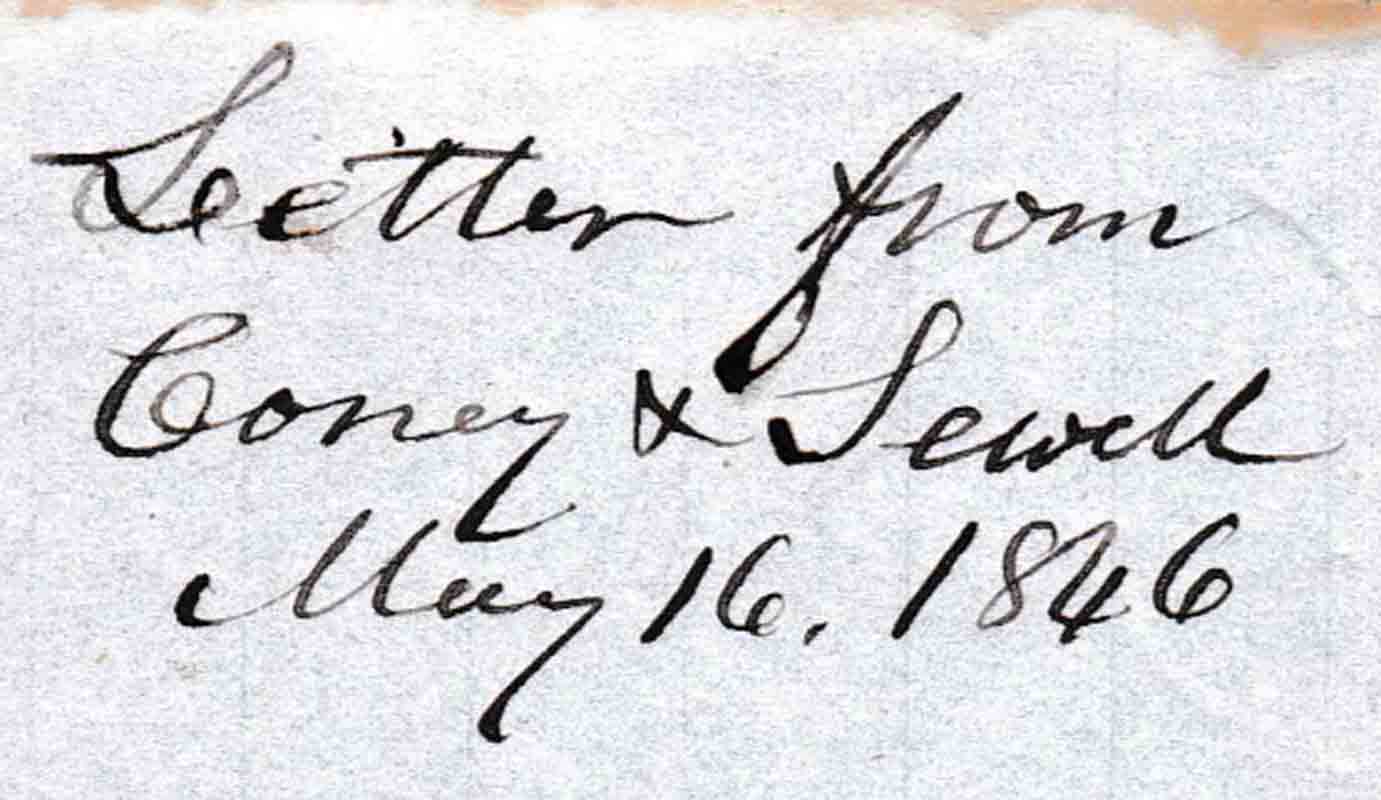 Letter from
Coney & Sewell
May 16. 1846